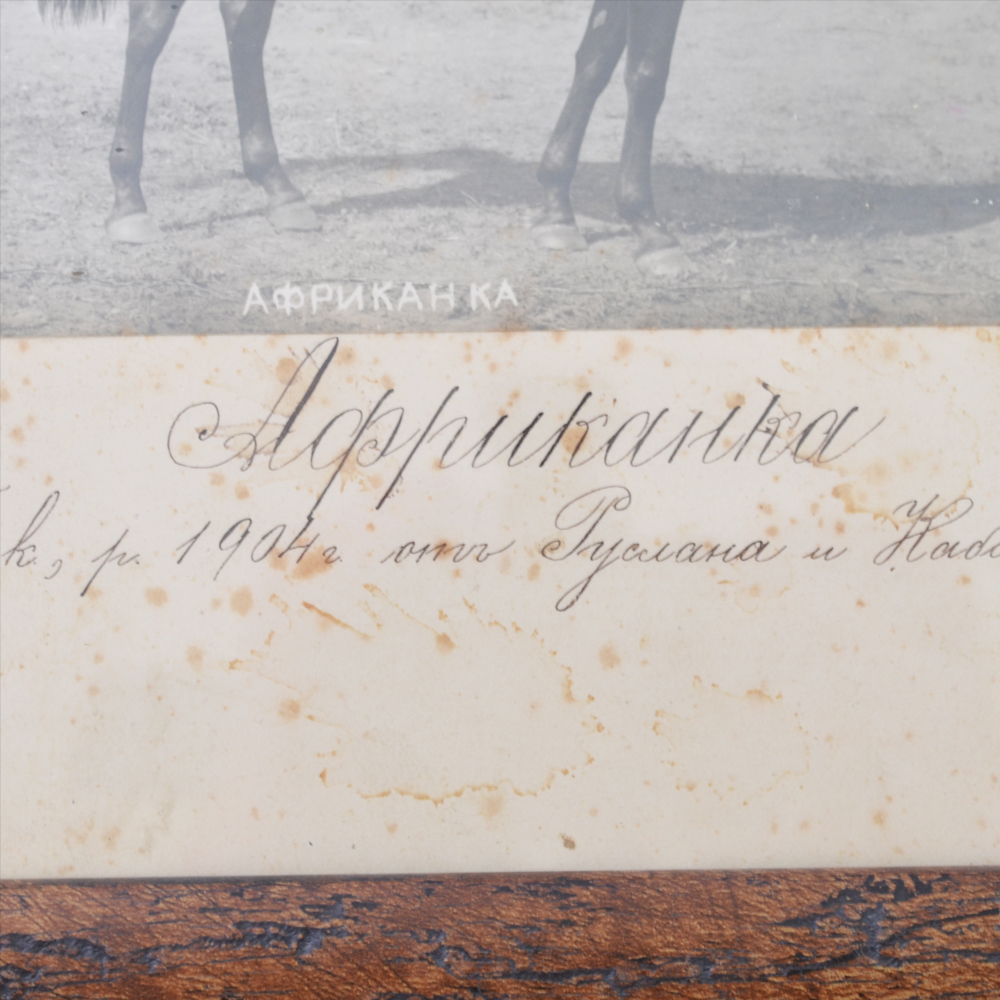 АФРИКАНКА
Африканка
к., р. 1904 г. отъ Руслана и